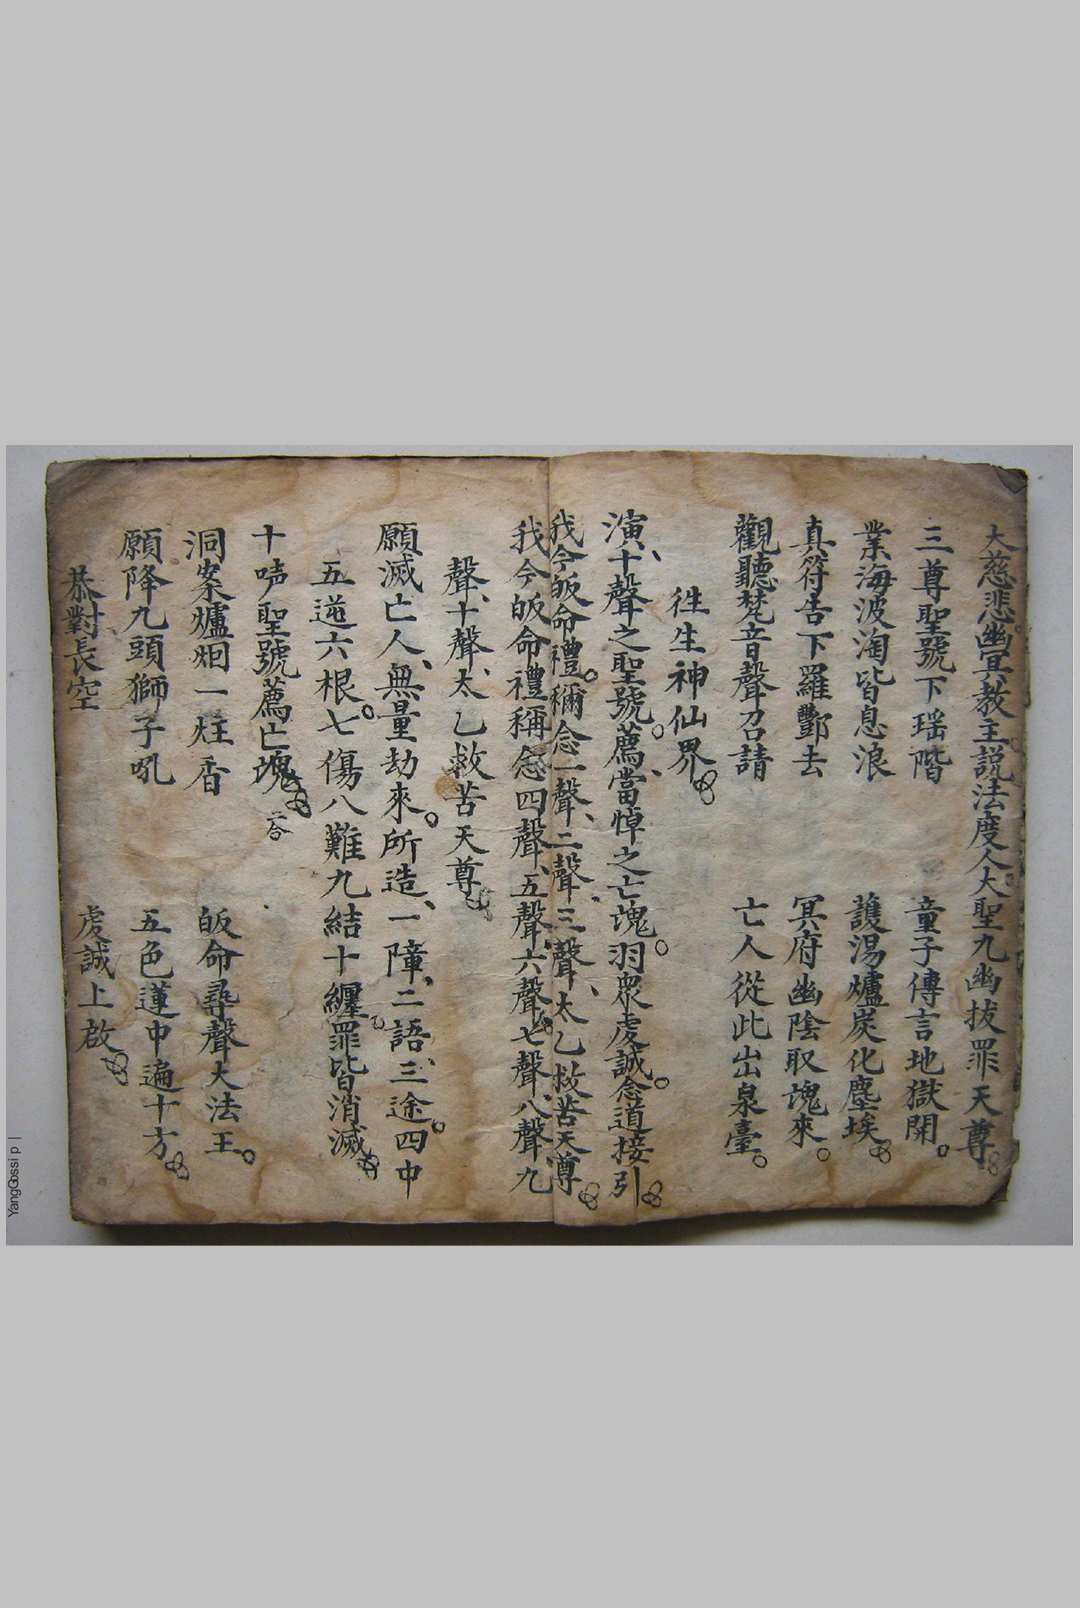 大慈悲幽冥教主説法度人大聖九幽拔罪天尊
三尊聖號下瑶階 童子傳言地獄開
業海波淘皆息浪 護湯爐炭化塵埃
真符告下羅酆去 冥府幽陰取塊來
觀聽梵音聲召請 亡人從此出泉臺
徃生神仙界
演十聲之聖號薦當悼之亡塊羽衆虔誠念道接引
我今皈命禮稱念一聲二聲三聲太乙救苦天尊
我今皈命禮稱念四聲五聲六聲七聲八聲九
聲十聲太乙救苦天尊
願滅亡人無量劫來所造一障二語三途四中
五逆六根七傷八難九結十纏罪皆消滅
十声聖號薦亡塊 答
洞案爐焖一炷香 皈命尋聲大法王
願降九頭獅子吼 五色蓮中遍十方
恭對長空 虔誠上啟
YangGossip |